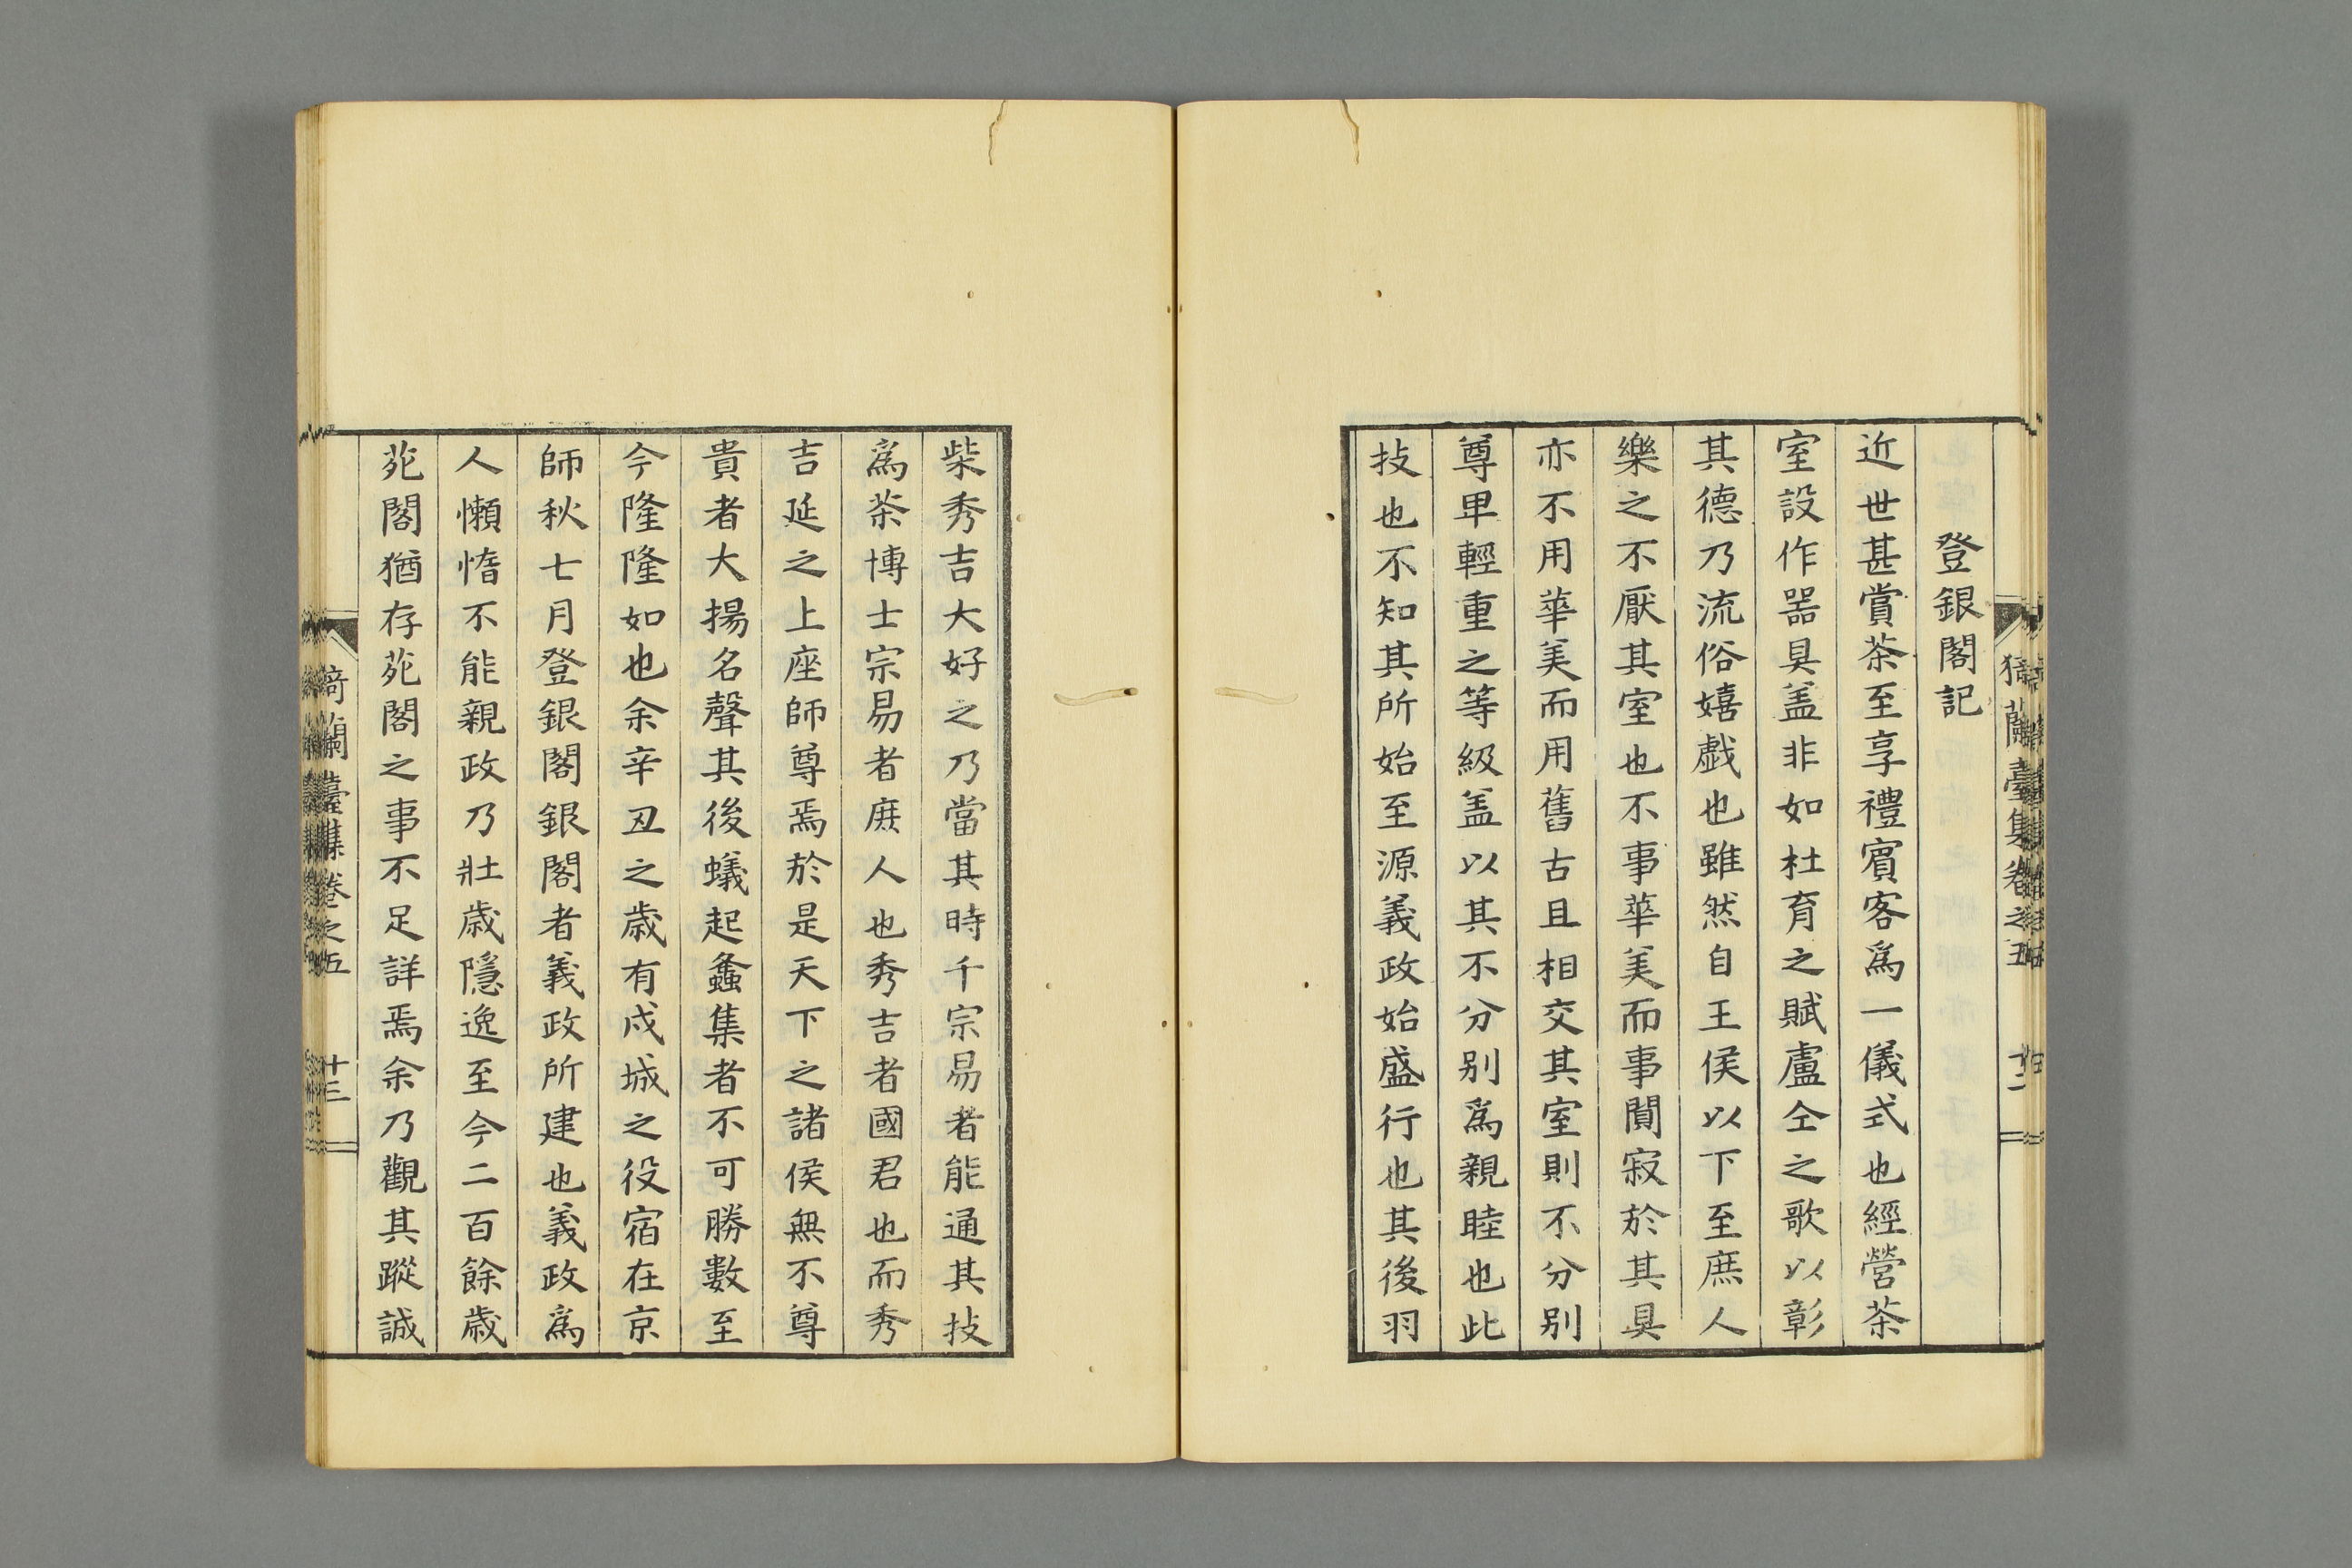 猗蘭臺集卷之五 十二
登銀閣記
近世甚賞茶至享禮賓客爲一儀式也經營茶
室設作噐具盖非如杜育之賦盧仝之歌以彰
其德乃流俗嬉戯也雖然自王侯以下至庶人
樂之不厭其室也不事華美而事閴寂於其具
亦不用華美而用舊古且相交其室則不分别
尊卑輕重之等級盖以其不分别爲親睦也此
技也不知其所始至源義政始盛行也其後羽
柴秀吉大好之乃當其時千宗易者能通其技
爲茶博士宗易者庶人也秀吉者國君也而秀
吉延之上座師尊焉於是天下之諸侯無不尊
貴者大揚名聲其後蟻起螽集者不可勝數至
今隆隆如也余辛丑之歳有戍城之役宿在京
師秋七月登銀閣銀閣者義政所建也義政爲
人懶惰不能親政乃壯歳隱逸至今二百餘歳
苑閣猶存苑閣之事不足詳焉余乃觀其蹤誠
猗蘭臺集卷之五 十三